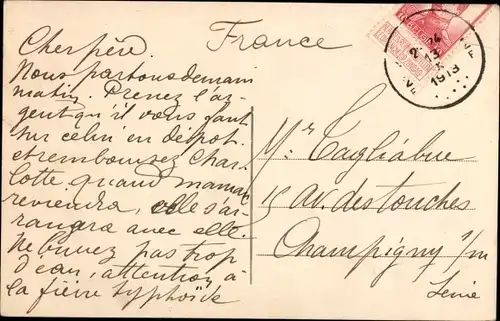 Cher père.
Nous partons demain
matin. Prenez l'ar-
gent qu'il vous faut
sur celui en dépot
et remboursez Char-
lotte quand maman
reviendra, elle s'ar-
rangera avec elle.
Ne buvez pas trop
d'eau, attention à
la fièvre typhoïde
France
Mr Tagliabue
15 av. des touches
Champigny s/m
Seine
1913